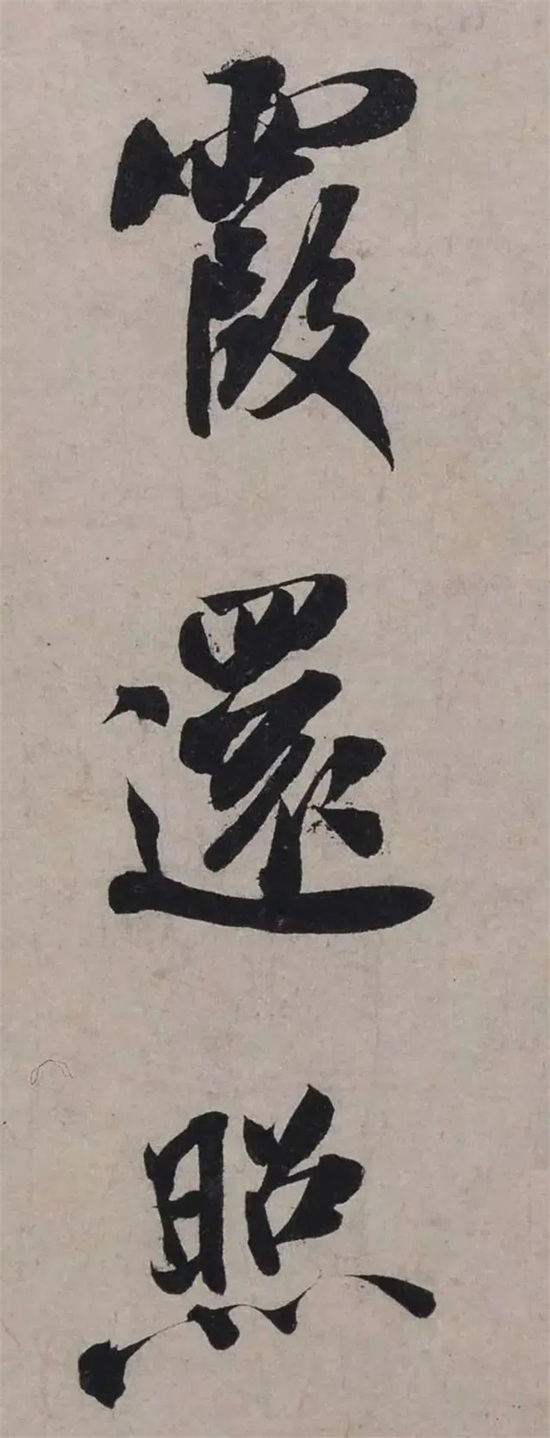 霞還照